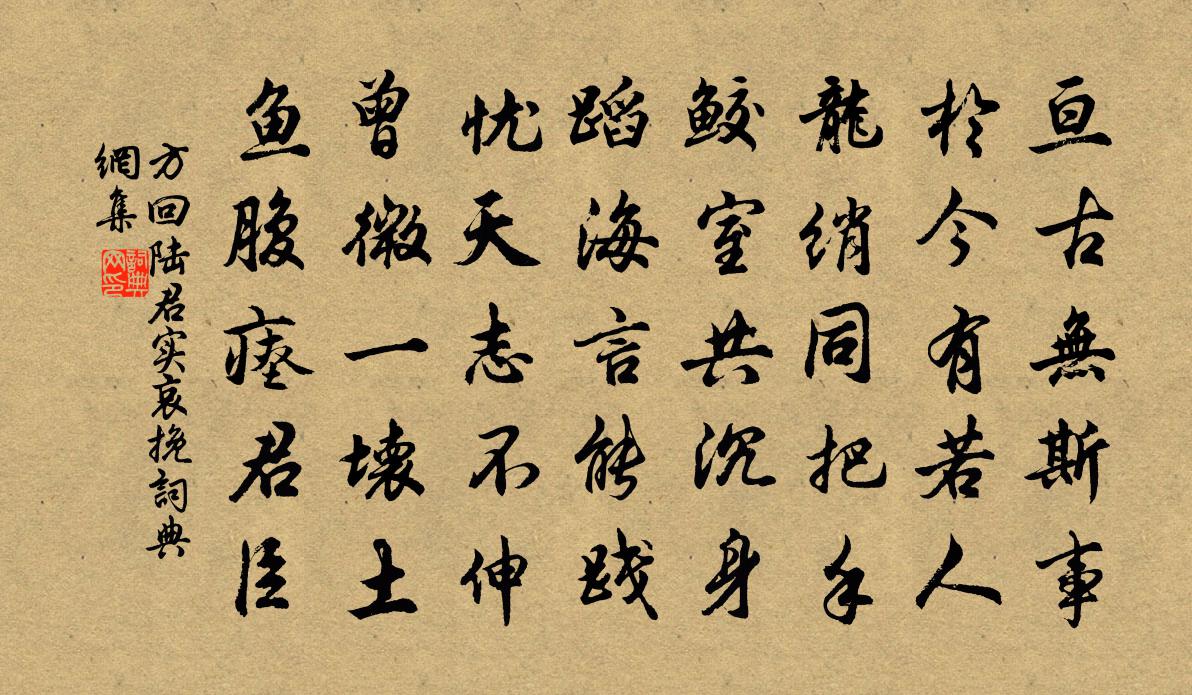 亘古無斯事
於今有若人
龍綃同把手
鮫室共沉身
蹈海言能踐
忧天志不伸
曾微一壊土
鱼腹瘗君臣
方回陆君实哀挽詞典
網集
詞典
网印